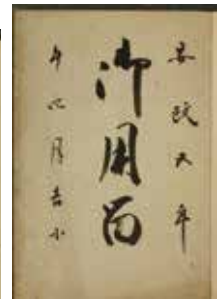 安政五年
御用留
午四月吉日